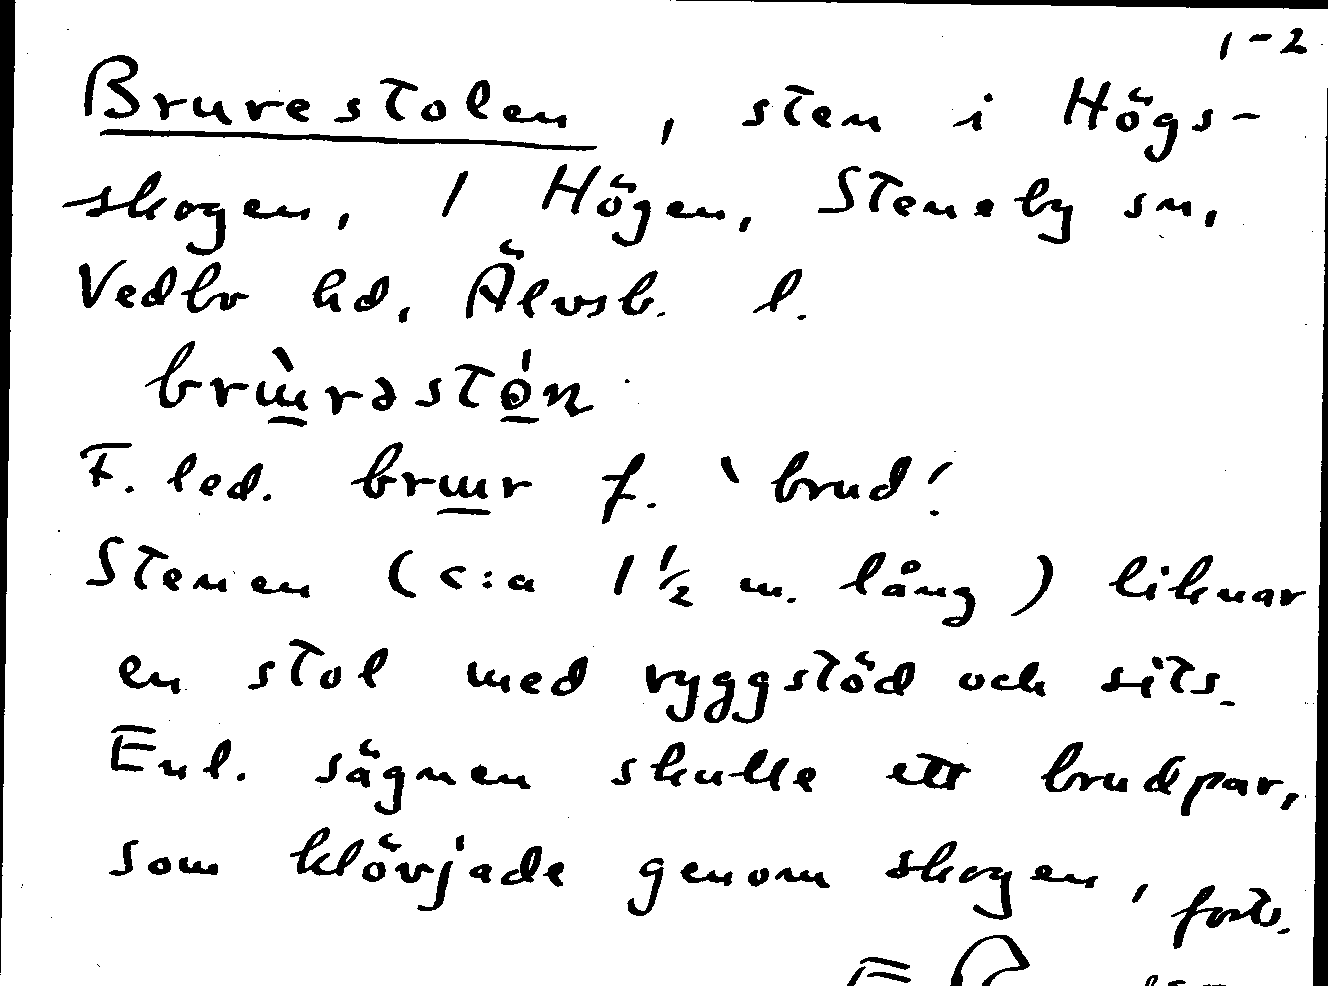 1-2
Brurestolen, sten i Högs-
skogen, 1 Högen, Steneby sn,
Vedbo hd, Älvsb. l.
brɯ̀rəstó̱n
F. led. brɯr f. 'brud'.
Stenen (c:a 1½ m. lång) liknar
en stol med ryggstöd och sits.
Enl. sägnen skulle ett brudpar,
som klövjade genom skogen,
forts.